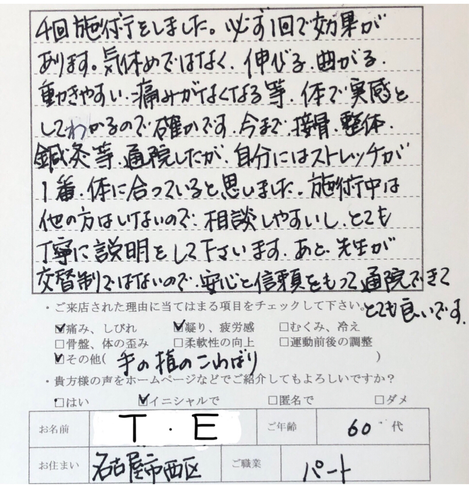 4回施術をしました。必ず1回で効果が
あります。気休めではなく、伸びる、曲がる、
動きやすい、痛みがなくなる等、体で実感と
してわかるので確かです。今まで、接骨、整体、
鍼灸等、通院したが、自分にはストレッチが
1番、体に合っていると思いました。施術中は
他の方はいないので、相談しやすいし、とても
丁寧に説明をして下さいます。あと、先生が
交替制ではないので、安心と信頼をもって通院できて
とても良いです。
・ご来店された理由に当てはまる項目をチェックして下さい。
☑痛み、しびれ ☑凝り、疲労感 □むくみ、冷え
□骨盤、体の歪み □柔軟性の向上 □運動前後の調整
☑その他( 手の指のこわばり )
・貴方様の声をホームページなどでご紹介してもよろしいですか?
□はい ☑イニシャルで □匿名で □ダメ
お名前 T・E ご年齢 60 代
お住まい 名古屋市西区 ご職業 パート